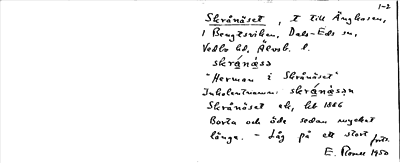 1-2
Skrånäset, t till Änghasen,
i Bengtsviken, Dals-Eds sn,
Vedbo hd, Älvsb. l.
skrånäsə
"Herman i Skrånäset"
Inbolentnamn: skrånäsən
Skrånäset ek, hb 1866
Borta och öde sedan mycket
länge. - Låg på ett stort
forts.
E. 1950